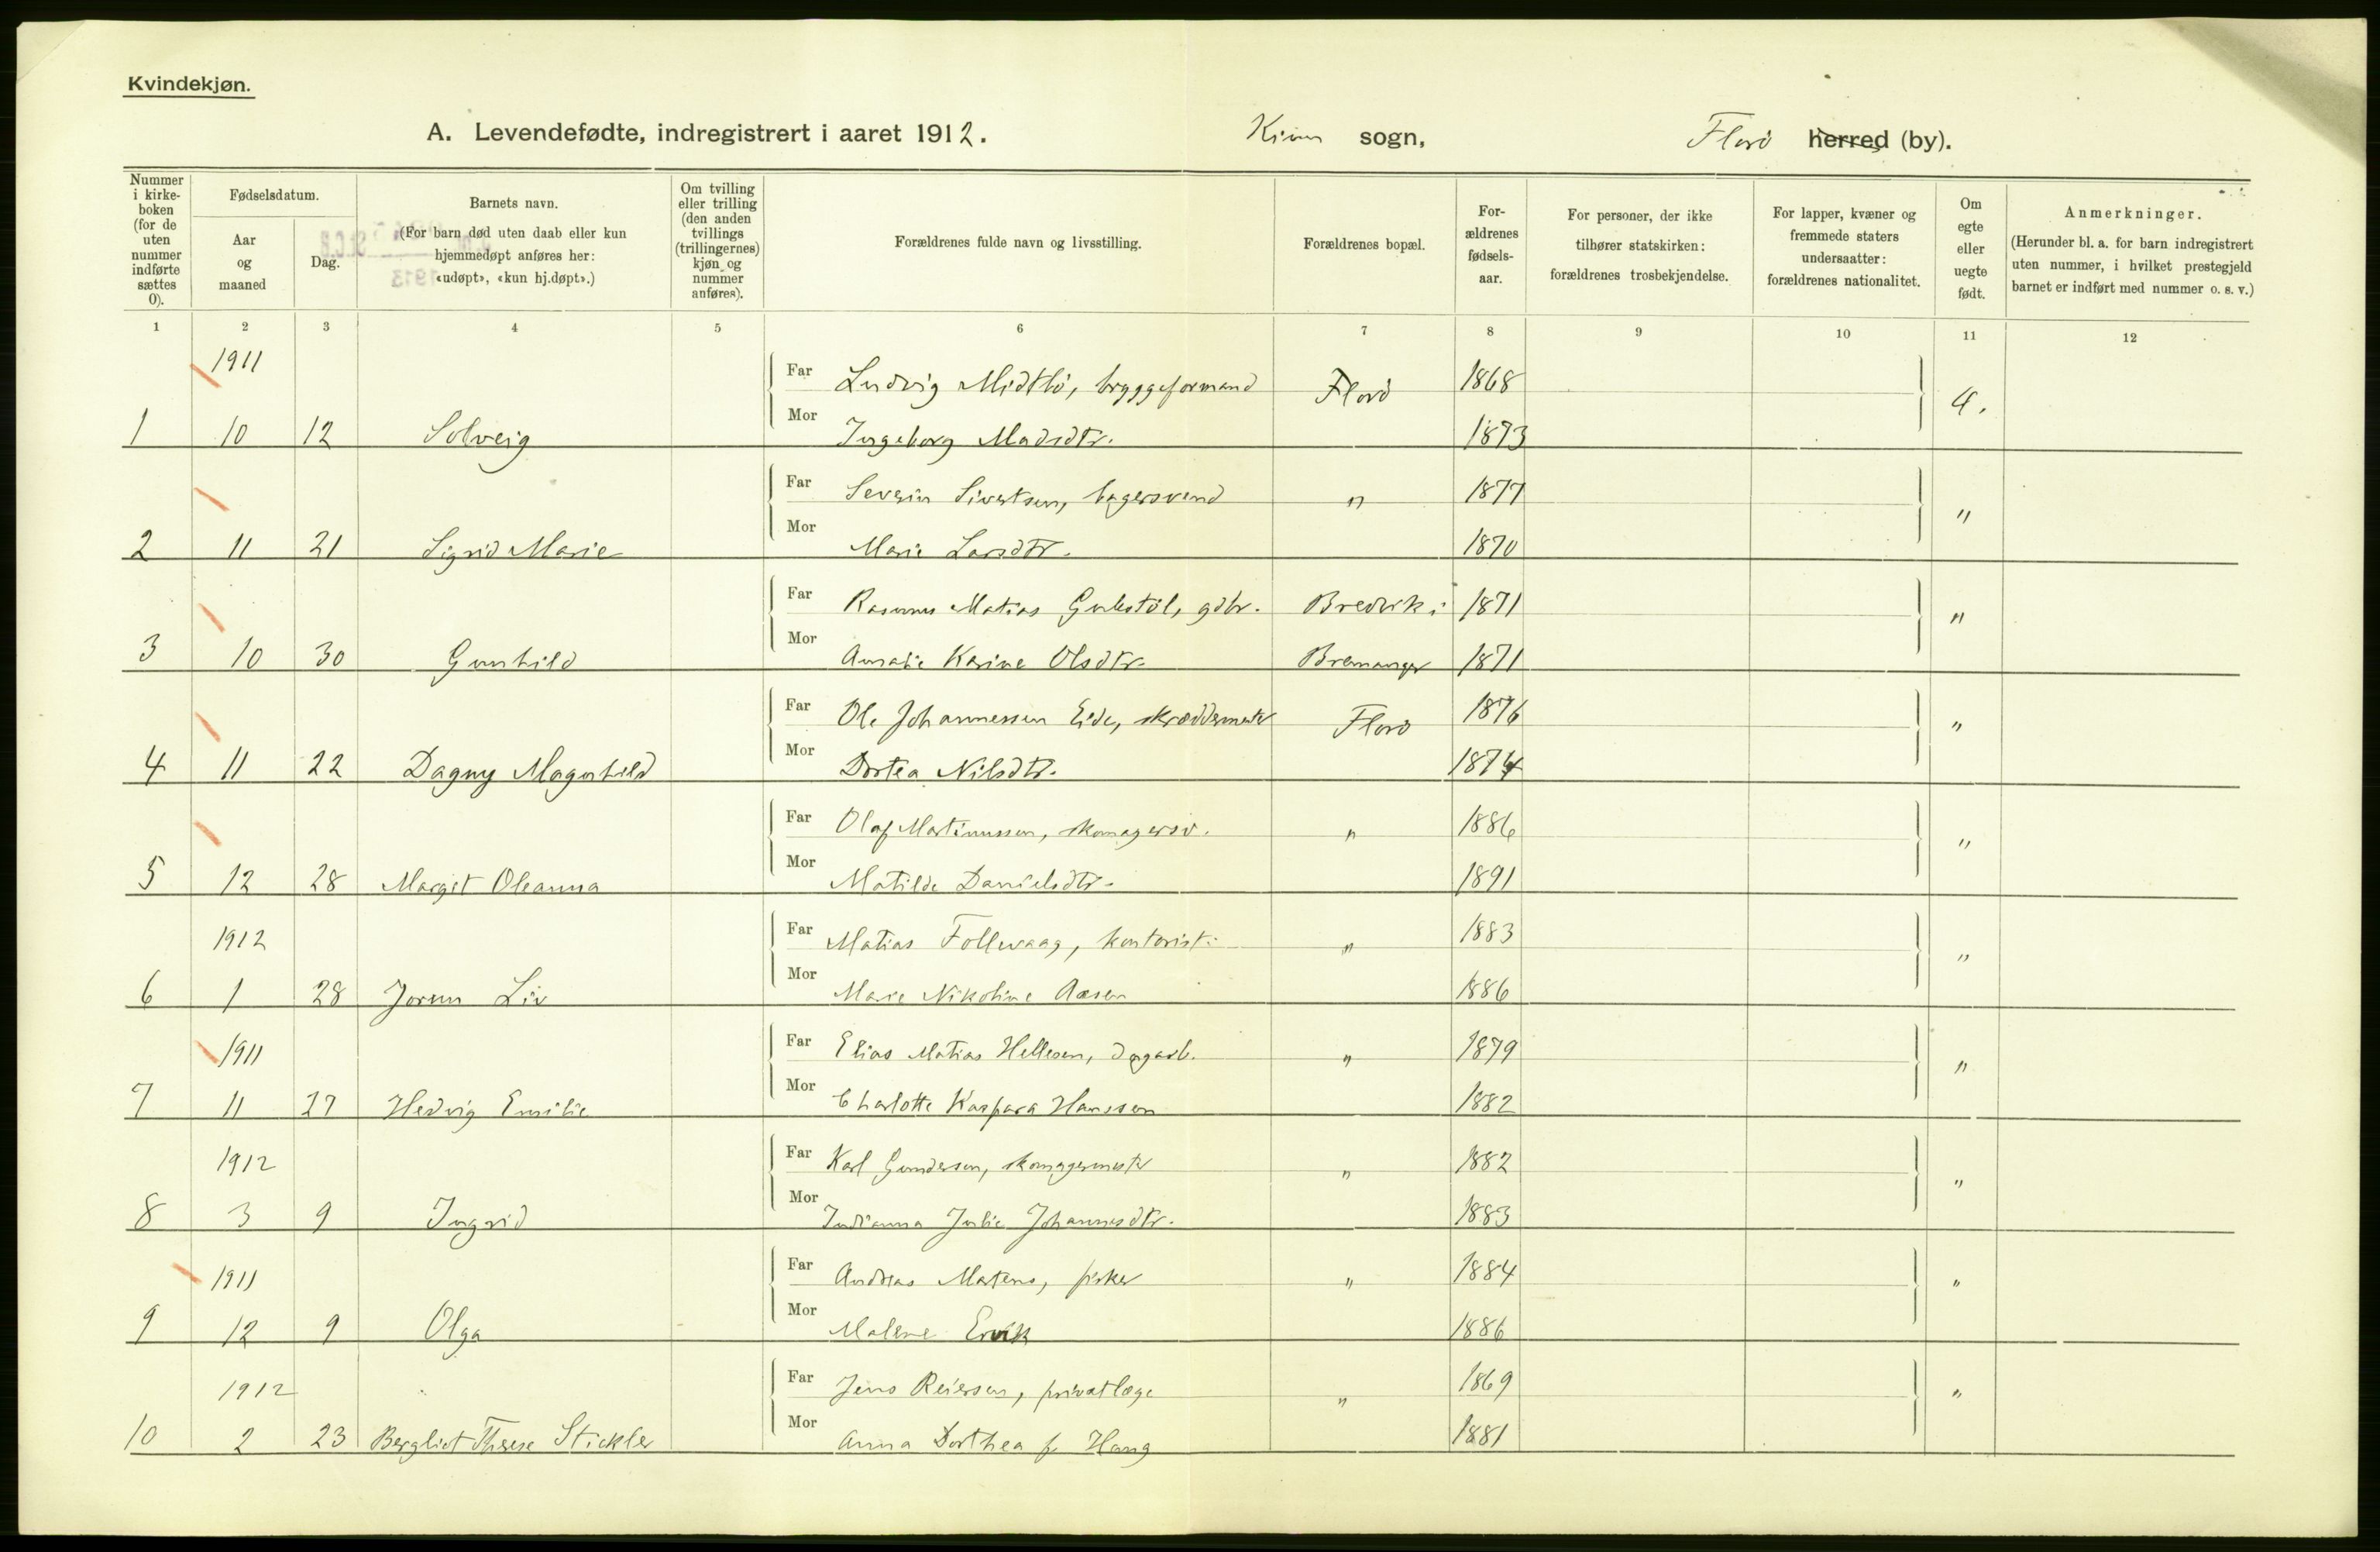 Kvindekjøn.
A. Levendefødte, indregistrert i aaret 1912. Kinn sogn, Florø herred (by).
Nummer i kirkeboken (for de uten nummer indførte sættes 0).
Fødselsdatum.
Aar og maaned
Dag.
Barnets navn.
(For barn død uten daab eller kun hjemmedøpt anføres her: «udøpt», «kun hj.døpt».)
Om tvilling eller trilling (den anden tvillings (trillingernes) kjøn og nummer anføres).
Forældrenes fulde navn og livsstilling.
Forældrenes bopæl.
Forældrenes fødselsaar.
For personer, der ikke tilhører statskirken: forældrenes trosbekjendelse.
For lapper, kvæner og fremmede staters undersaatter: forældrenes nationalitet.
Om egte eller uegte født.
Anmerkninger.
(Herunder bl. a. for barn indregistrert uten nummer, i hvilket prestegjeld barnet er indført med nummer o. s. v.)
1 2 3 4 5 6 7 8 9 10 11 12
1911 Far Ludvig Midtbö, bryggeformand Florö 1868
1 10 12 Solveig Mor Ingeborg Madsdtr. 1873
Far Severin Sivertsen, bagersvend " 1877 "
2 11 21 Sigrid Marie Mor Marie Larsdtr. 1870
Far Rasmus Matias gdbr. Bredvik i 1871 "
3 10 30 Gunhild Mor Amalie Karine Olsdtr. Bremanger 1871
Far Ole Johannessen Eide, skræddermester Florö 1876 "
4 11 22 Dagny Magnhild Mor Dortea Nilsdtr. 1874
Far Olaf Martinussen, skomagersv. " 1886 "
5 12 28 Margit Oleanna Mor Matilde Danielsdtr. 1891
1912 Far Matias Follevaag, kontorist. " 1883 "
6 1 28 Jorun Liv Mor Marie Nikoline Aasen 1886
1911 Far Elias Matias Hellesen, dagarb. " 1879 "
7 11 27 Hedvig Emilie Mor Charlotte Kaspara Hanssen 1882
1912 Far Karl Gundersen, skomagermester " 1882 "
8 3 9 Ingrid Mor Indianna Julie Johannesdtr. 1883
1911 Far Andreas Martens, fisker " 1884 "
9 12 9 Olga Mor Malene Ervik 1886
1912 Far Jens Reiersen, privatlæge " 1869 "
10 2 23 Bergliot Therese Stickler Mor Anna Dorthea f. Haug 1881